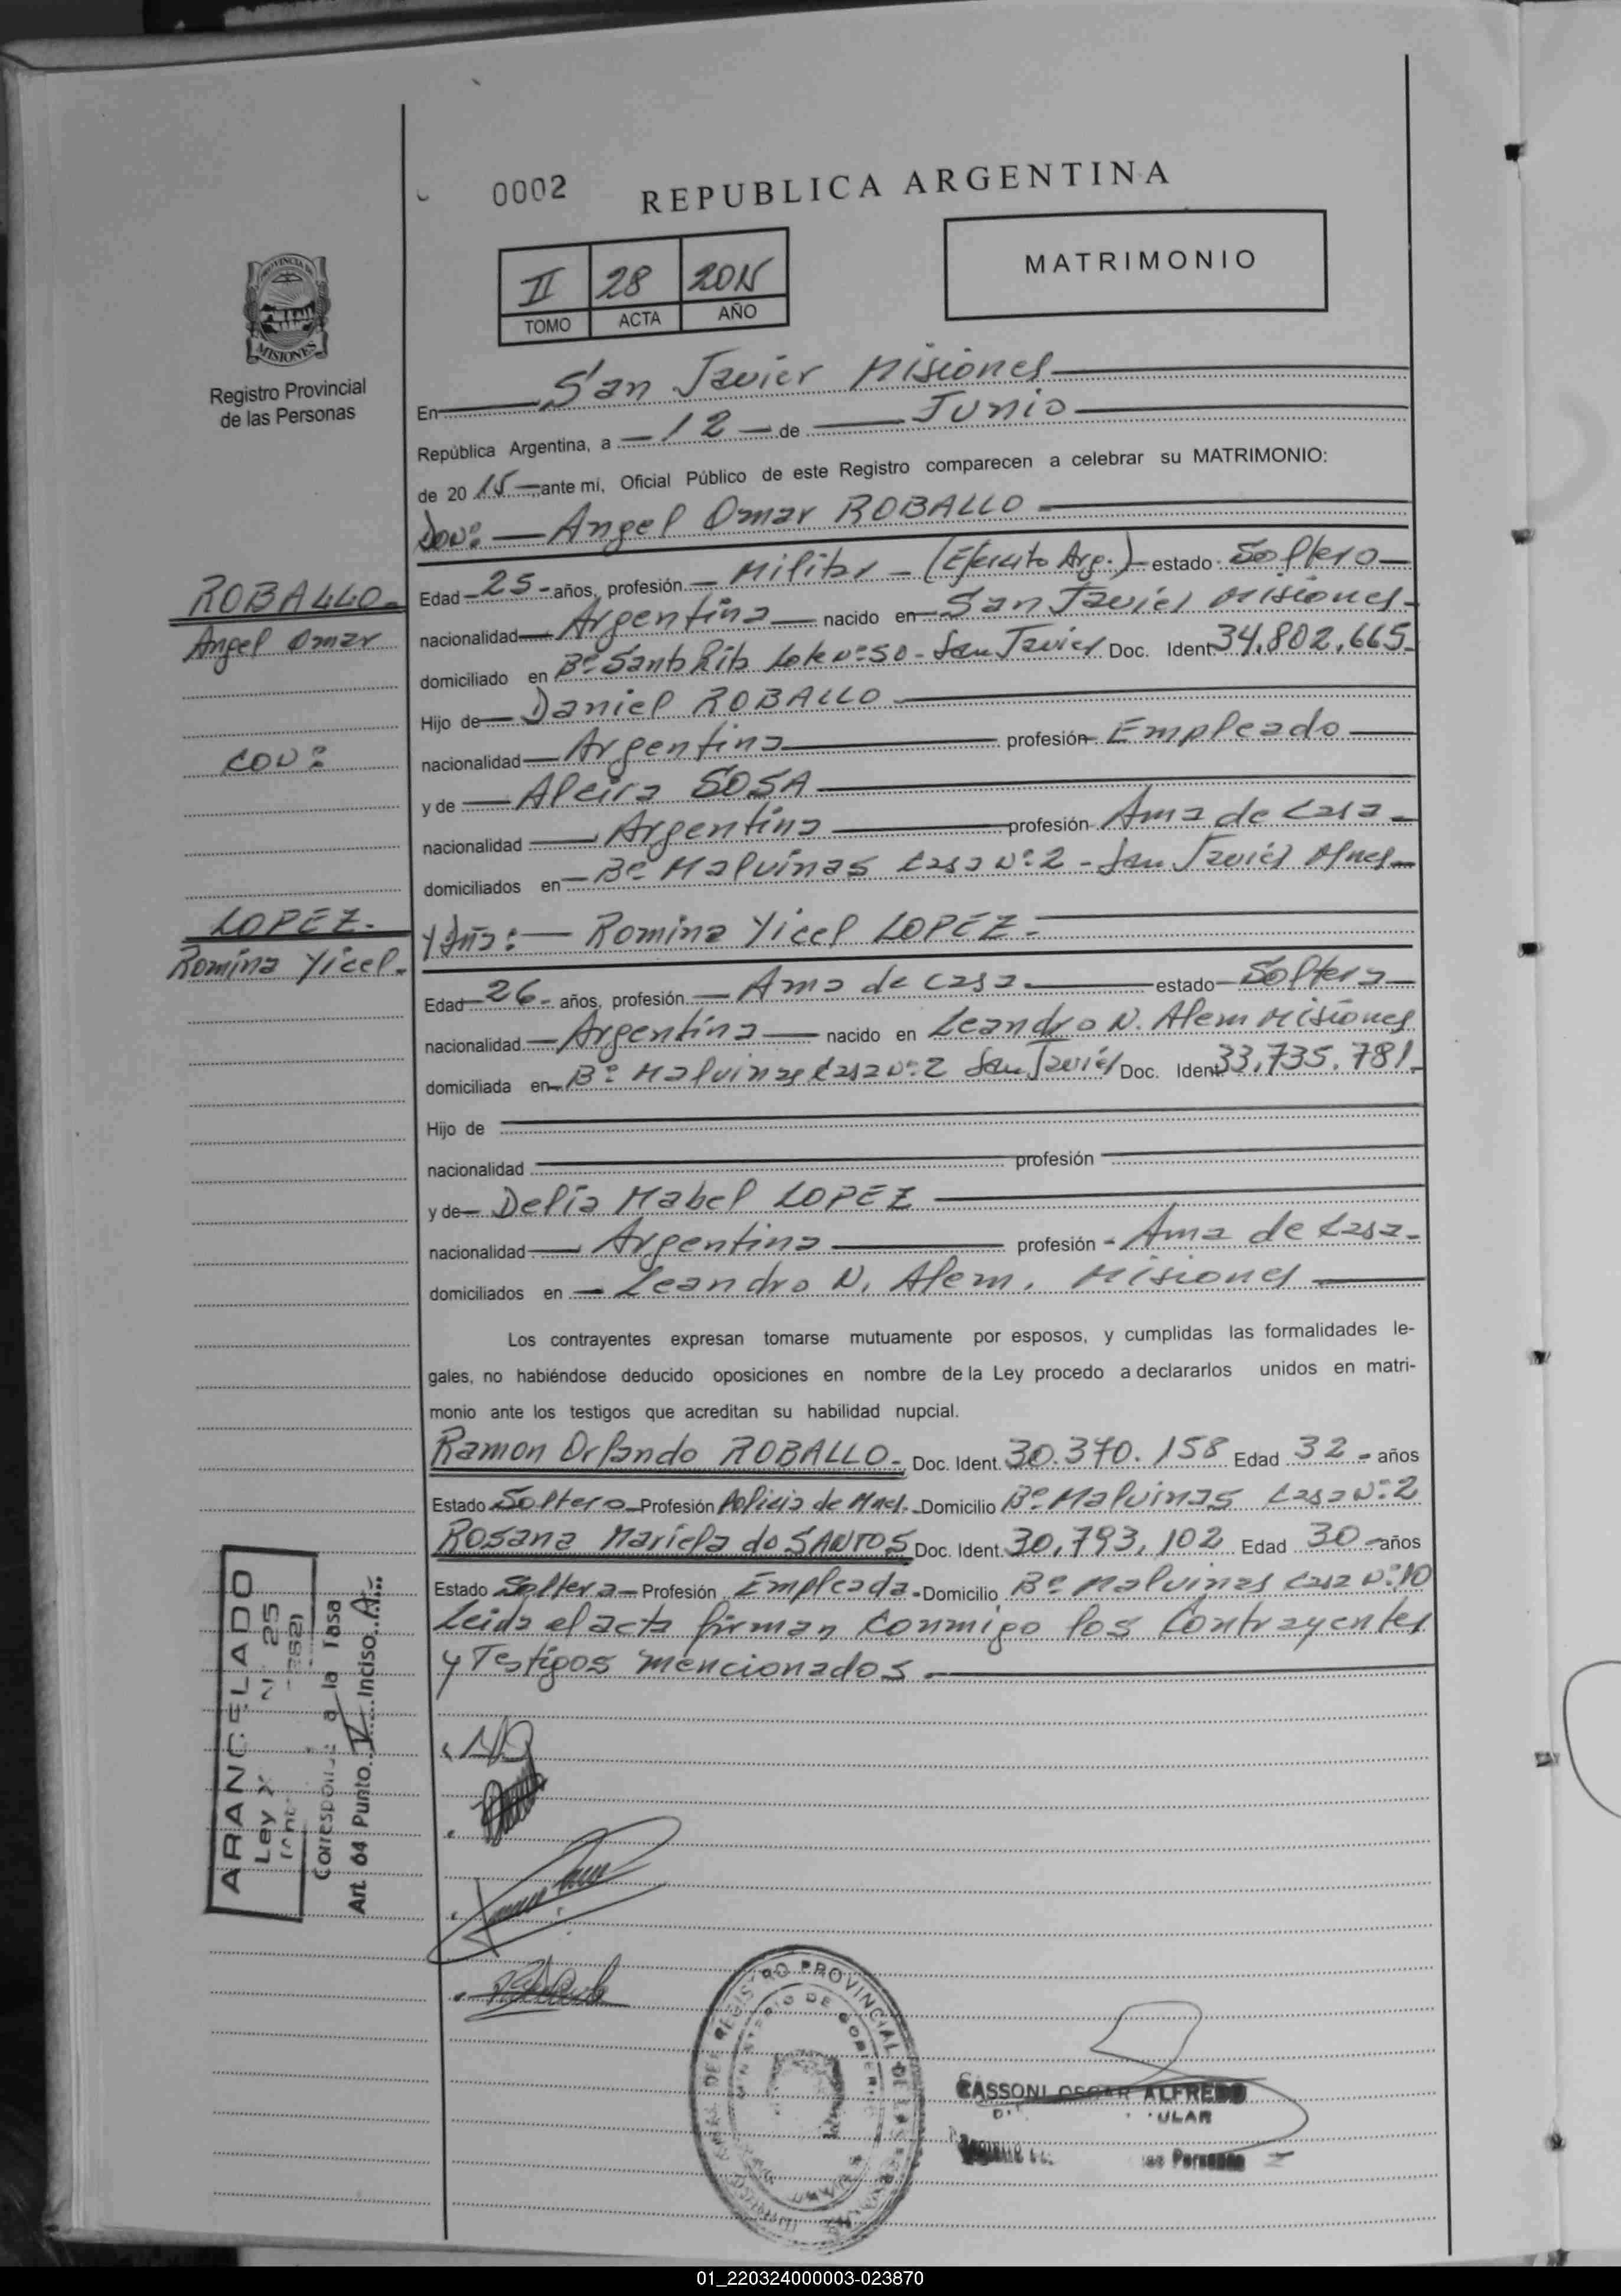 0002
REPUBLICA ARGENTINA
II 28 2015
TOMO ACTA AÑO
MATRIMONIO
PROVINCIA DE
MISIONES
Registro Provincial
de las Personas
En San Javier Misiones
República Argentina, a 12 de Junio
de 2015 ante mí, Oficial Público de este Registro comparecen a celebrar su MATRIMONIO:
Don: Angel Omar ROBALLO
ROBALLO
Angel Omar
con:
Edad 25 años, profesión Militar (Ejercito Arg.) estado Soltero
nacionalidad Argentina nacido en San Javier Misiones
domiciliado en Bº Santa Rita Lote Nº 50 - San Javier Doc. Ident 34.802.665
Hijo de Daniel ROBALLO
nacionalidad Argentina profesión Empleado
y de Alcira SOSA
nacionalidad Argentina profesión Ama de Casa
domiciliados en Bº Malvinas Casa Nº 2 - San Javier Mnes
LOPEZ
Romina Yicel
y Dña: Romina Yicel LOPEZ
Edad 26 años, profesión Ama de casa estado Soltera
nacionalidad Argentina nacido en Leandro N. Alem Misiones
domiciliada en Bº Malvinas Casa Nº 2 San Javier Doc. Ident 33.735.781
Hijo de
nacionalidad profesión
y de Delia Mabel LOPEZ
nacionalidad Argentina profesión Ama de Casa
domiciliados en Leandro N. Alem, Misiones
Los contrayentes expresan tomarse mutuamente por esposos, y cumplidas las formalidades le-
gales, no habiéndose deducido oposiciones en nombre de la Ley procedo a declararlos unidos en matri-
monio ante los testigos que acreditan su habilidad nupcial.
Ramon Orlando ROBALLO Doc. Ident. 30.370.158 Edad 32 años
Estado Soltero Profesión Policia de Mnes. Domicilio Bº Malvinas Casa Nº 2
Rosana Mariela do SANTOS Doc. Ident. 30.793.102 Edad 30 años
Estado Soltera Profesión Empleada Domicilio Bº Malvinas Casa Nº 10
Leida el acta firman conmigo los Contrayentes
y Testigos mencionados
ARANCELADO
Ley 25
a la Tasa
Art. 64 Punto IV Inciso A
REGISTRO PROVINCIAL DE LAS
MINISTERIO DE GOBIERNO
CASSONI OSCAR ALFREDO
01_220324000003-023870